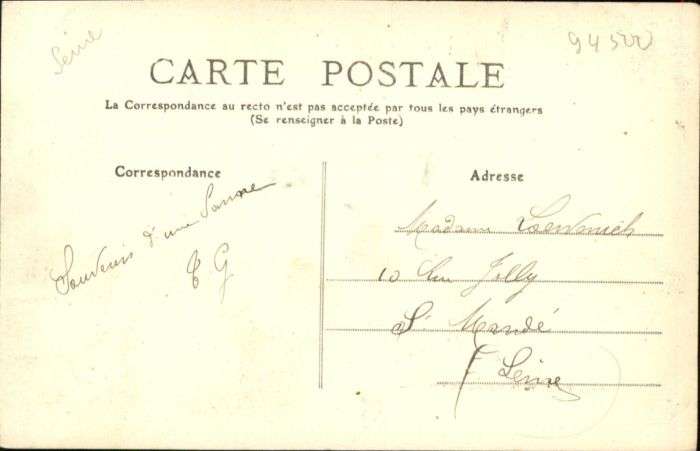 Seine
94500
CARTE POSTALE
La Correspondance au recto n'est pas acceptée par tous les pays étrangers
(Se renseigner à la Poste)
Correspondance
Souvenir d'une
G
Adresse
Madame
10 Rue Jolly
St Mandé
Seine